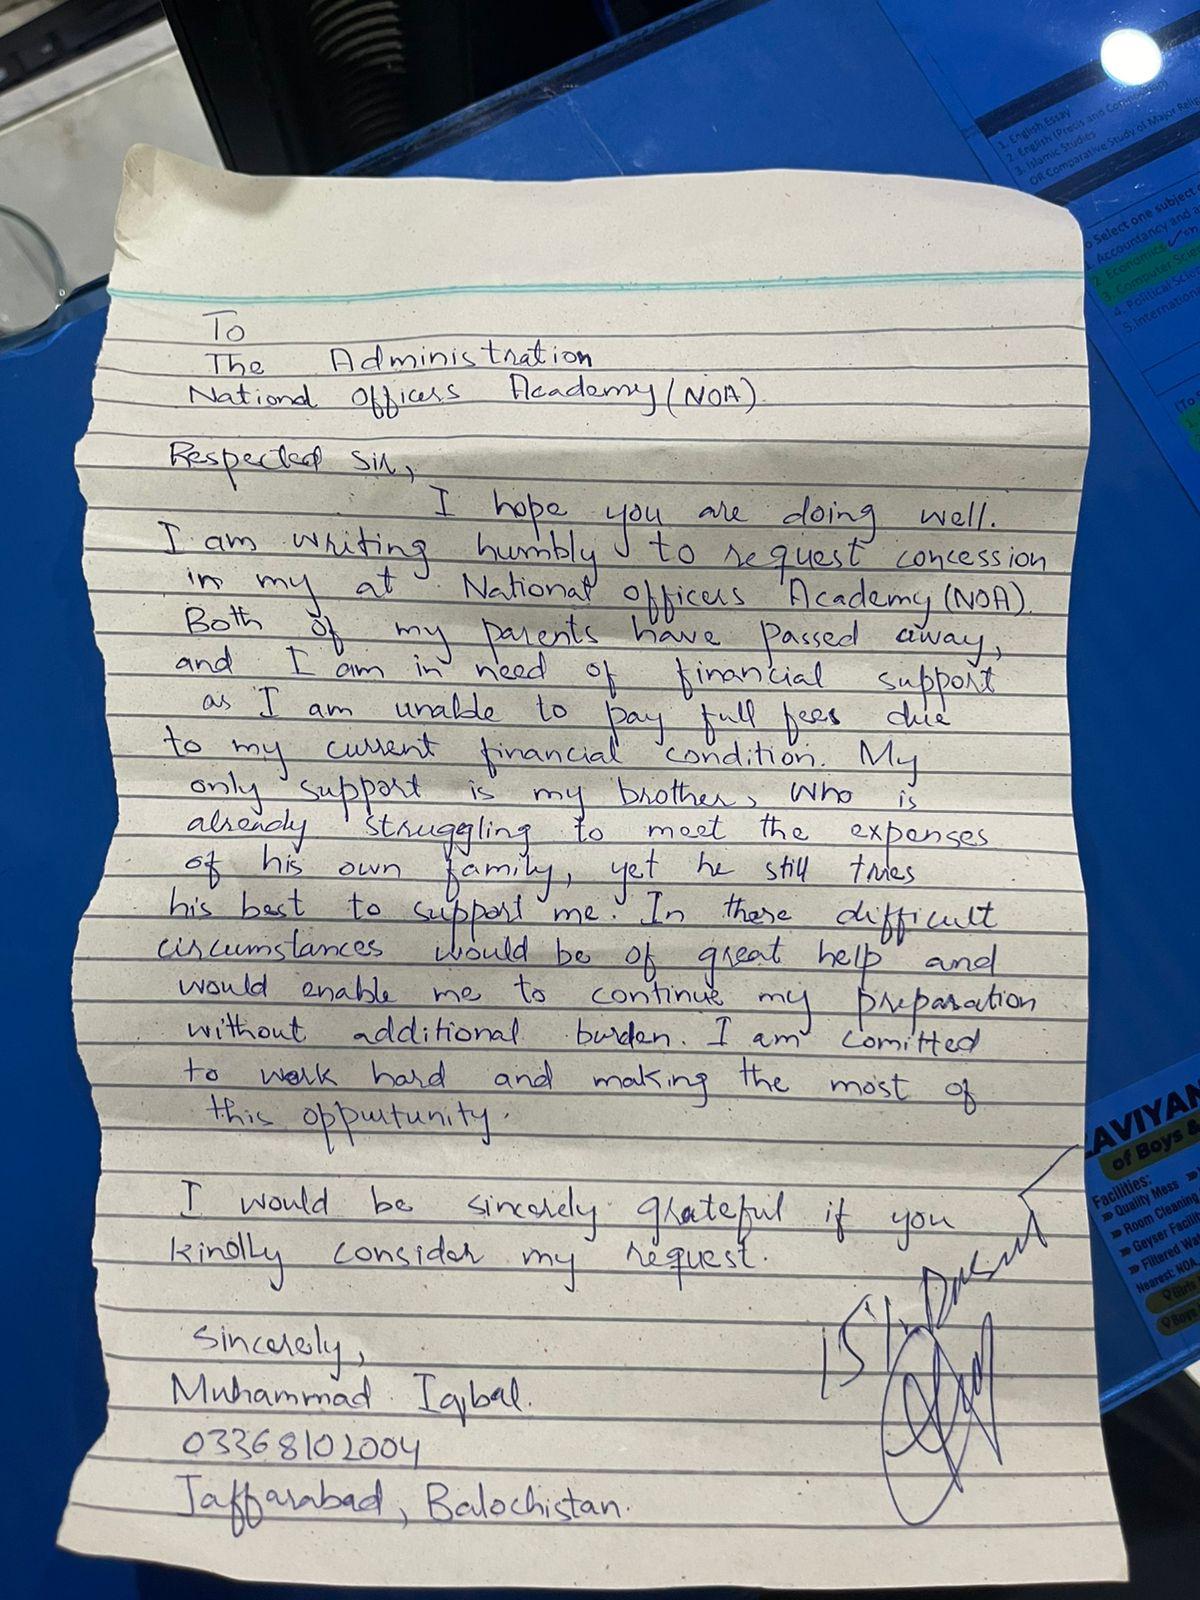 1. English Essay
2. English (Precis and Composition)
3. Islamic Studies
OR Comparative Study of Major Relig
Select one subject
1. Accountancy and
2. Economics
3. Computer Scien
4. Political Scie
5. Internation
To
The Administration
National Officers Academy (NOA)
Respected Sir,
I hope you are doing well.
I am writing humbly to request concession
in my at National Officers Academy (NOA).
Both of my parents have passed away,
and I am in need of financial support
as I am unable to pay full fees due
to my current financial condition. My
only support is my brother, who is
already struggling to meet the expenses
of his own family, yet he still tries
his best to support me. In these difficult
circumstances would be of great help and
would enable me to continue my preparation
without additional burden. I am comitted
to work hard and making the most of
this oppurtunity.
I would be sincerely grateful if you
kindly consider my request.
Sincerely,
Muhammad Iqbal.
03368102004
Jaffarabad, Balochistan.
15%
AVIYAN
of Boys &
Facilities:
Quality Mess
Room Cleaning
Geyser Facilit
Filtered Wat
Nearest: NOA,
Girls
Boys